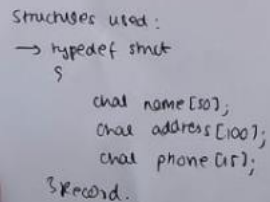 Structures used:
→ typedef struct
{
char name[50];
char address[100];
char phone[15];
}Record.